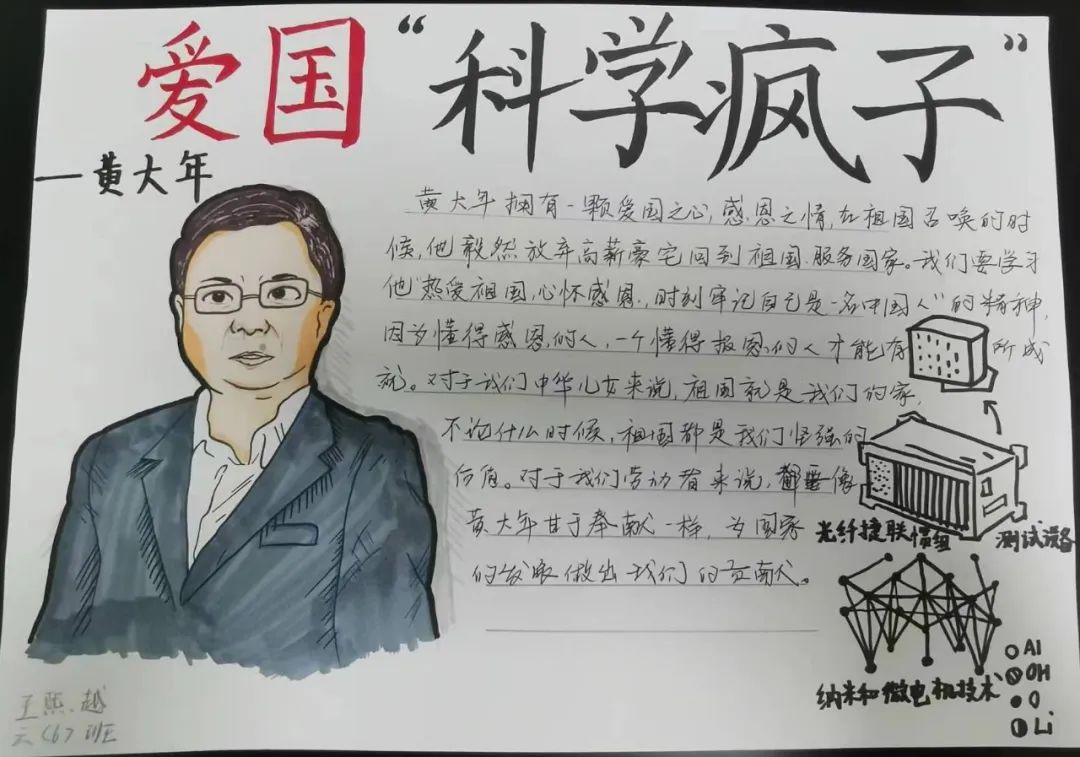 爱国“科学疯子”
—黄大年
黄大年拥有一颗爱国之心,感恩之情,在祖国召唤的时
候,他毅然放弃高薪豪宅回到祖国.服务国家。我们要学习
他“热爱祖国,心怀感恩,时刻牢记自己是一名中国人”的精神,
因为懂得感恩的人,一个懂得报恩的人才能有所成
就。对于我们中华儿女来说,祖国就是我们的家,
不论什么时候,祖国都是我们坚强的
后盾。对于我们劳动者来说,像
黄大年甘于奉献一样,为国家
的发展做出我们的贡献。
光纤捷联惯组
测试设备
纳米和微电机技术
Al
OH
O
Li
王熙越
云(6)班